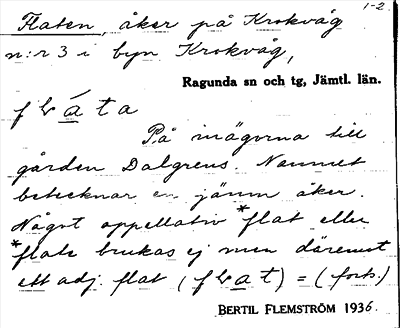 1-2.
Flaten, åker på Krokvåg
n:r 3 i byn Krokvåg,
Ragunda sn och tg, Jämtl. län.
På inägorna till
gården Dalgrens. Namnet
betecknar en jämn åker.
Något appellativ *flat eller
*flate brukas ej men däremot
ett adj. flat ( ) = (forts.)
BERTIL FLEMSTRÖM 1936.